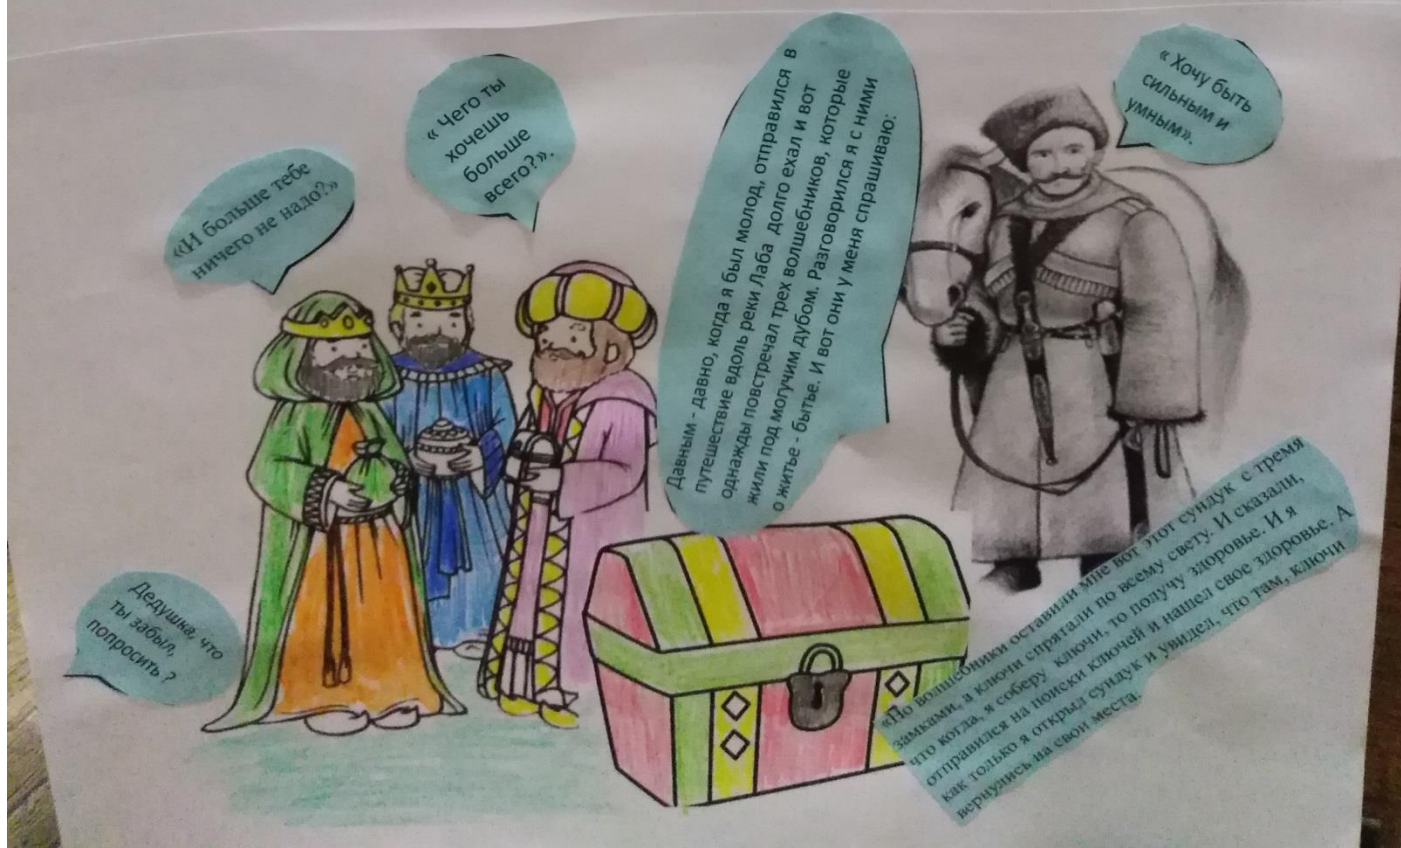 «И больше тебе
ничего не надо?»
« Чего ты
хочешь
больше
всего?».
Давным - давно, когда я был молод, отправился в
путешествие вдоль реки Лаба долго ехал и вот
однажды повстречал трех волшебников, которые
жили под могучим дубом. Разговорился я с ними
о житье - бытье. И вот они у меня спрашивают:
« Хочу быть
сильным и
умным».
Дедушка, что
ты забыл,
попросить ?
«Но волшебники оставили мне вот этот сундук с тремя
замками, а ключи спрятали по всему свету. И сказали,
что когда, я соберу ключи, то получу здоровье. И я
отправился на поиски ключей и нашел свое здоровье. А
как только я открыл сундук и увидел, что там, ключи
вернулись на свои места.